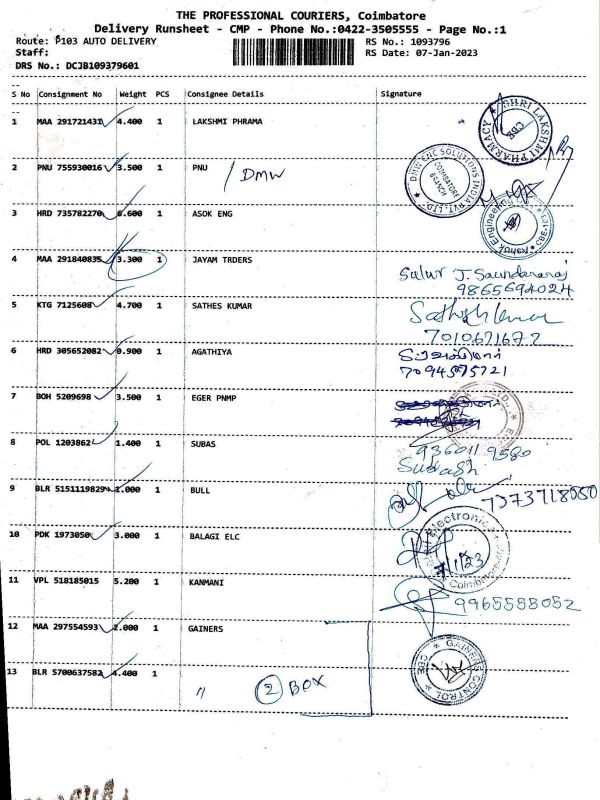 THE PROFESSIONAL COURIERS, Coimbatore
Delivery Runsheet - CMP - Phone No.:0422-3505555 - Page No.:1
Route: P103 AUTO DELIVERY
RS No.: 1093796
Staff:
RS Date: 07-Jan-2023
DRS No.: DCJB109379601
S No Consignment No Weight PCS Consignee Details Signature
1 MAA 291721431 4.400 1 LAKSHMI PHRAMA
SHRI LAKSHMI PHARMACY CBE
2 PNU 755930016 3.500 1 PNU / DMW
DMW CNC SOLUTIONS INDIA PVT. LTD. COIMBATORE BRANCH
3 HRD 735782270 0.600 1 ASOK ENG
Ashok Engineering
4 MAA 291840835 3.300 1 JAYAM TRDERS
Sulur J. Saundararaj
9865694024
5 KTG 7125608 4.700 1 SATHES KUMAR
Sathish kumar
7010671672
6 HRD 305652082 0.900 1 AGATHIYA
7094575721
7 BOH 5209698 3.500 1 EGER PNMP
8 POL 1203862 1.400 1 SUBAS
9360119580
Subash
9 BLR 5151119829 1.000 1 BULL
7373718080
10 PDK 1973050 3.000 1 BALAGI ELC
Electronic Coimbatore
11 VPL 518185015 5.200 1 KANMANI
9965588052
12 MAA 297554593 2.000 1 GAINERS
GAINERS CONTROL CBE
13 BLR 5700637582 4.400 1 " 2 BOX